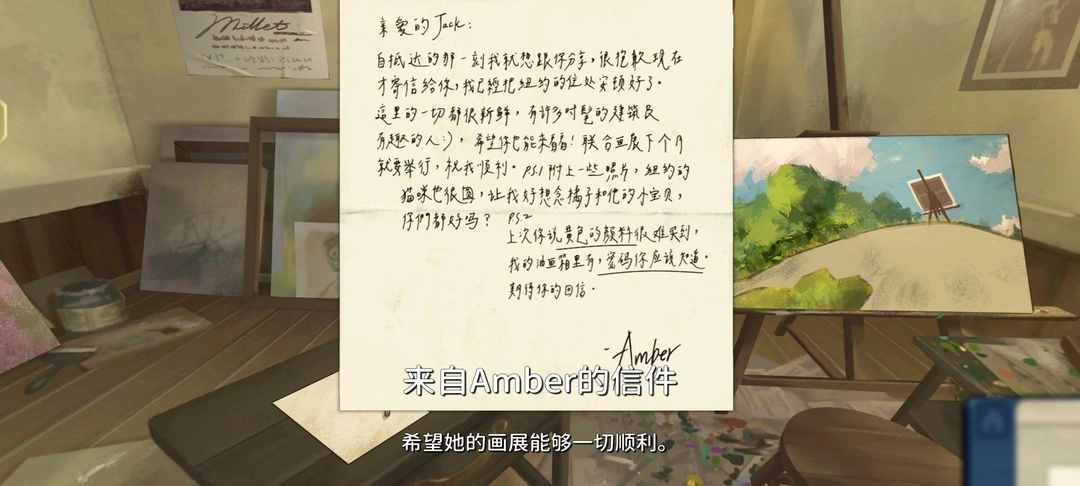 Millet
亲爱的Jack:
自抵达的那一刻我就想跟你分享,很抱歉现在
才寄信给你,我已經把纽约的住处安顿好了。
這里的一切都很新鲜,有许多时髦的建筑及
有趣的人:),希望你也能来看看!联合画展下个月
就要举行,祝我顺利。P.S.1 附上一些照片,纽约的
猫咪也很圆,让我好想念橘子和他的小宝贝,
你們都好吗?
P.S.2
上次你说黄色的颜料很难买到,
我的油画箱里有,密码你应该知道。
期待你的回信。
-Amber
来自Amber的信件
希望她的画展能够一切顺利。